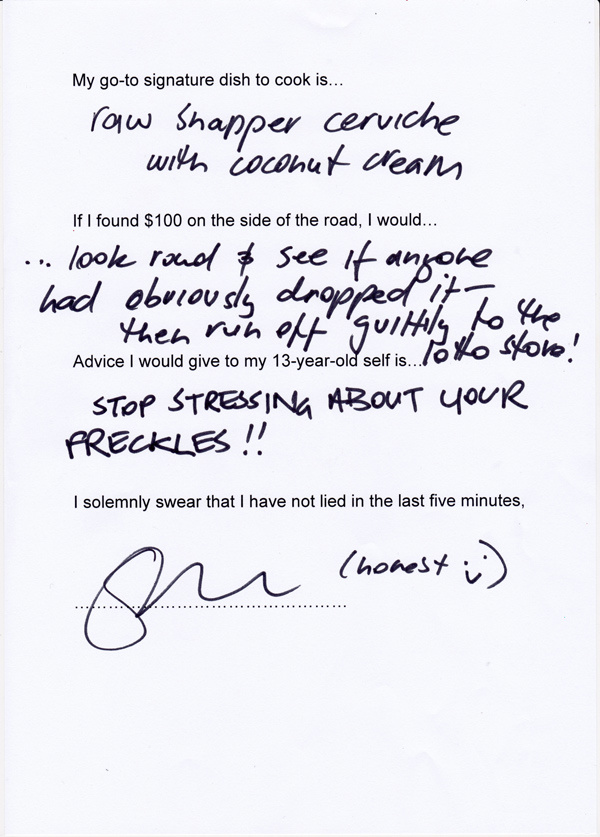 My go-to signature dish to cook is…
raw snapper cerviche
with coconut cream
If I found $100 on the side of the road, I would…
... look round & see if anyone
had obviously dropped it –
then run off guiltily to the
lotto store!
Advice I would give to my 13-year-old self is…
STOP STRESSING ABOUT YOUR
FRECKLES!!
I solemnly swear that I have not lied in the last five minutes,
(honest :))